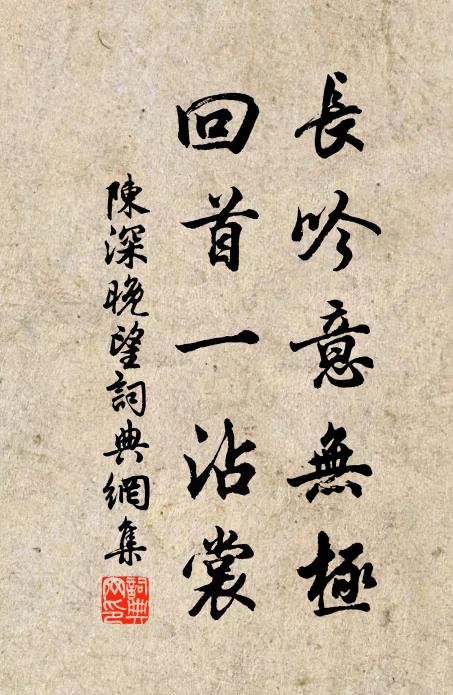 長吟意無極
回首一沾裳
陳深晚望詞典網集
詞典
网印